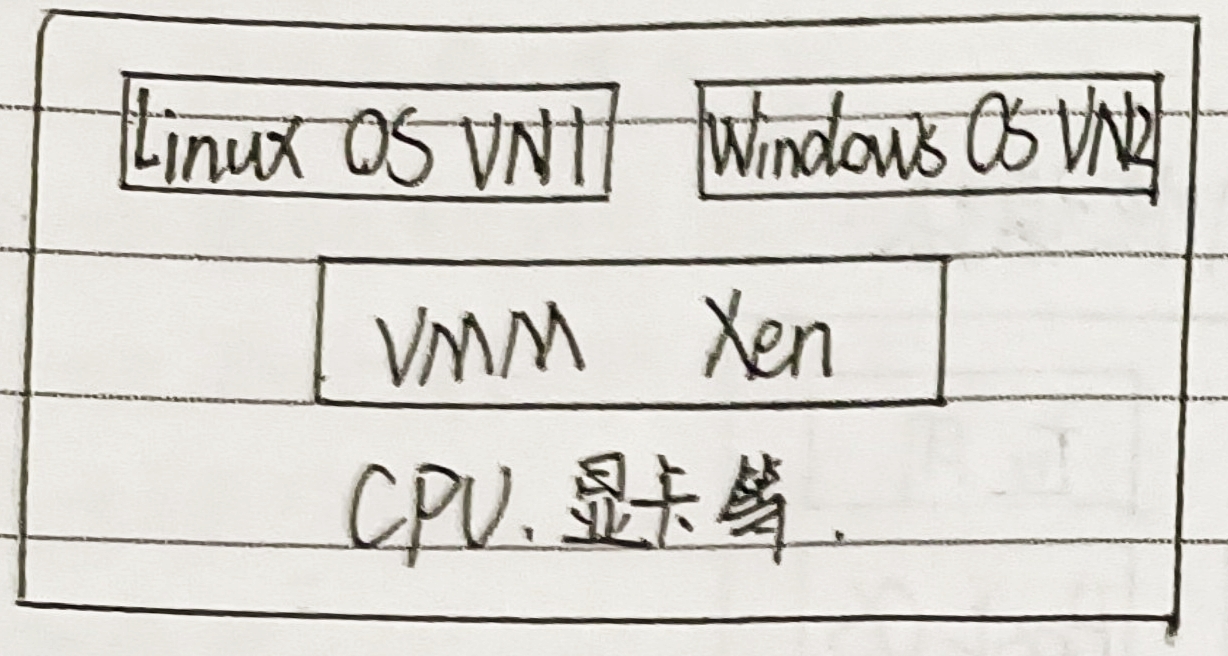 Linux OS VN1 Windows OS VN2
VMM Xen
CPU、显卡等.